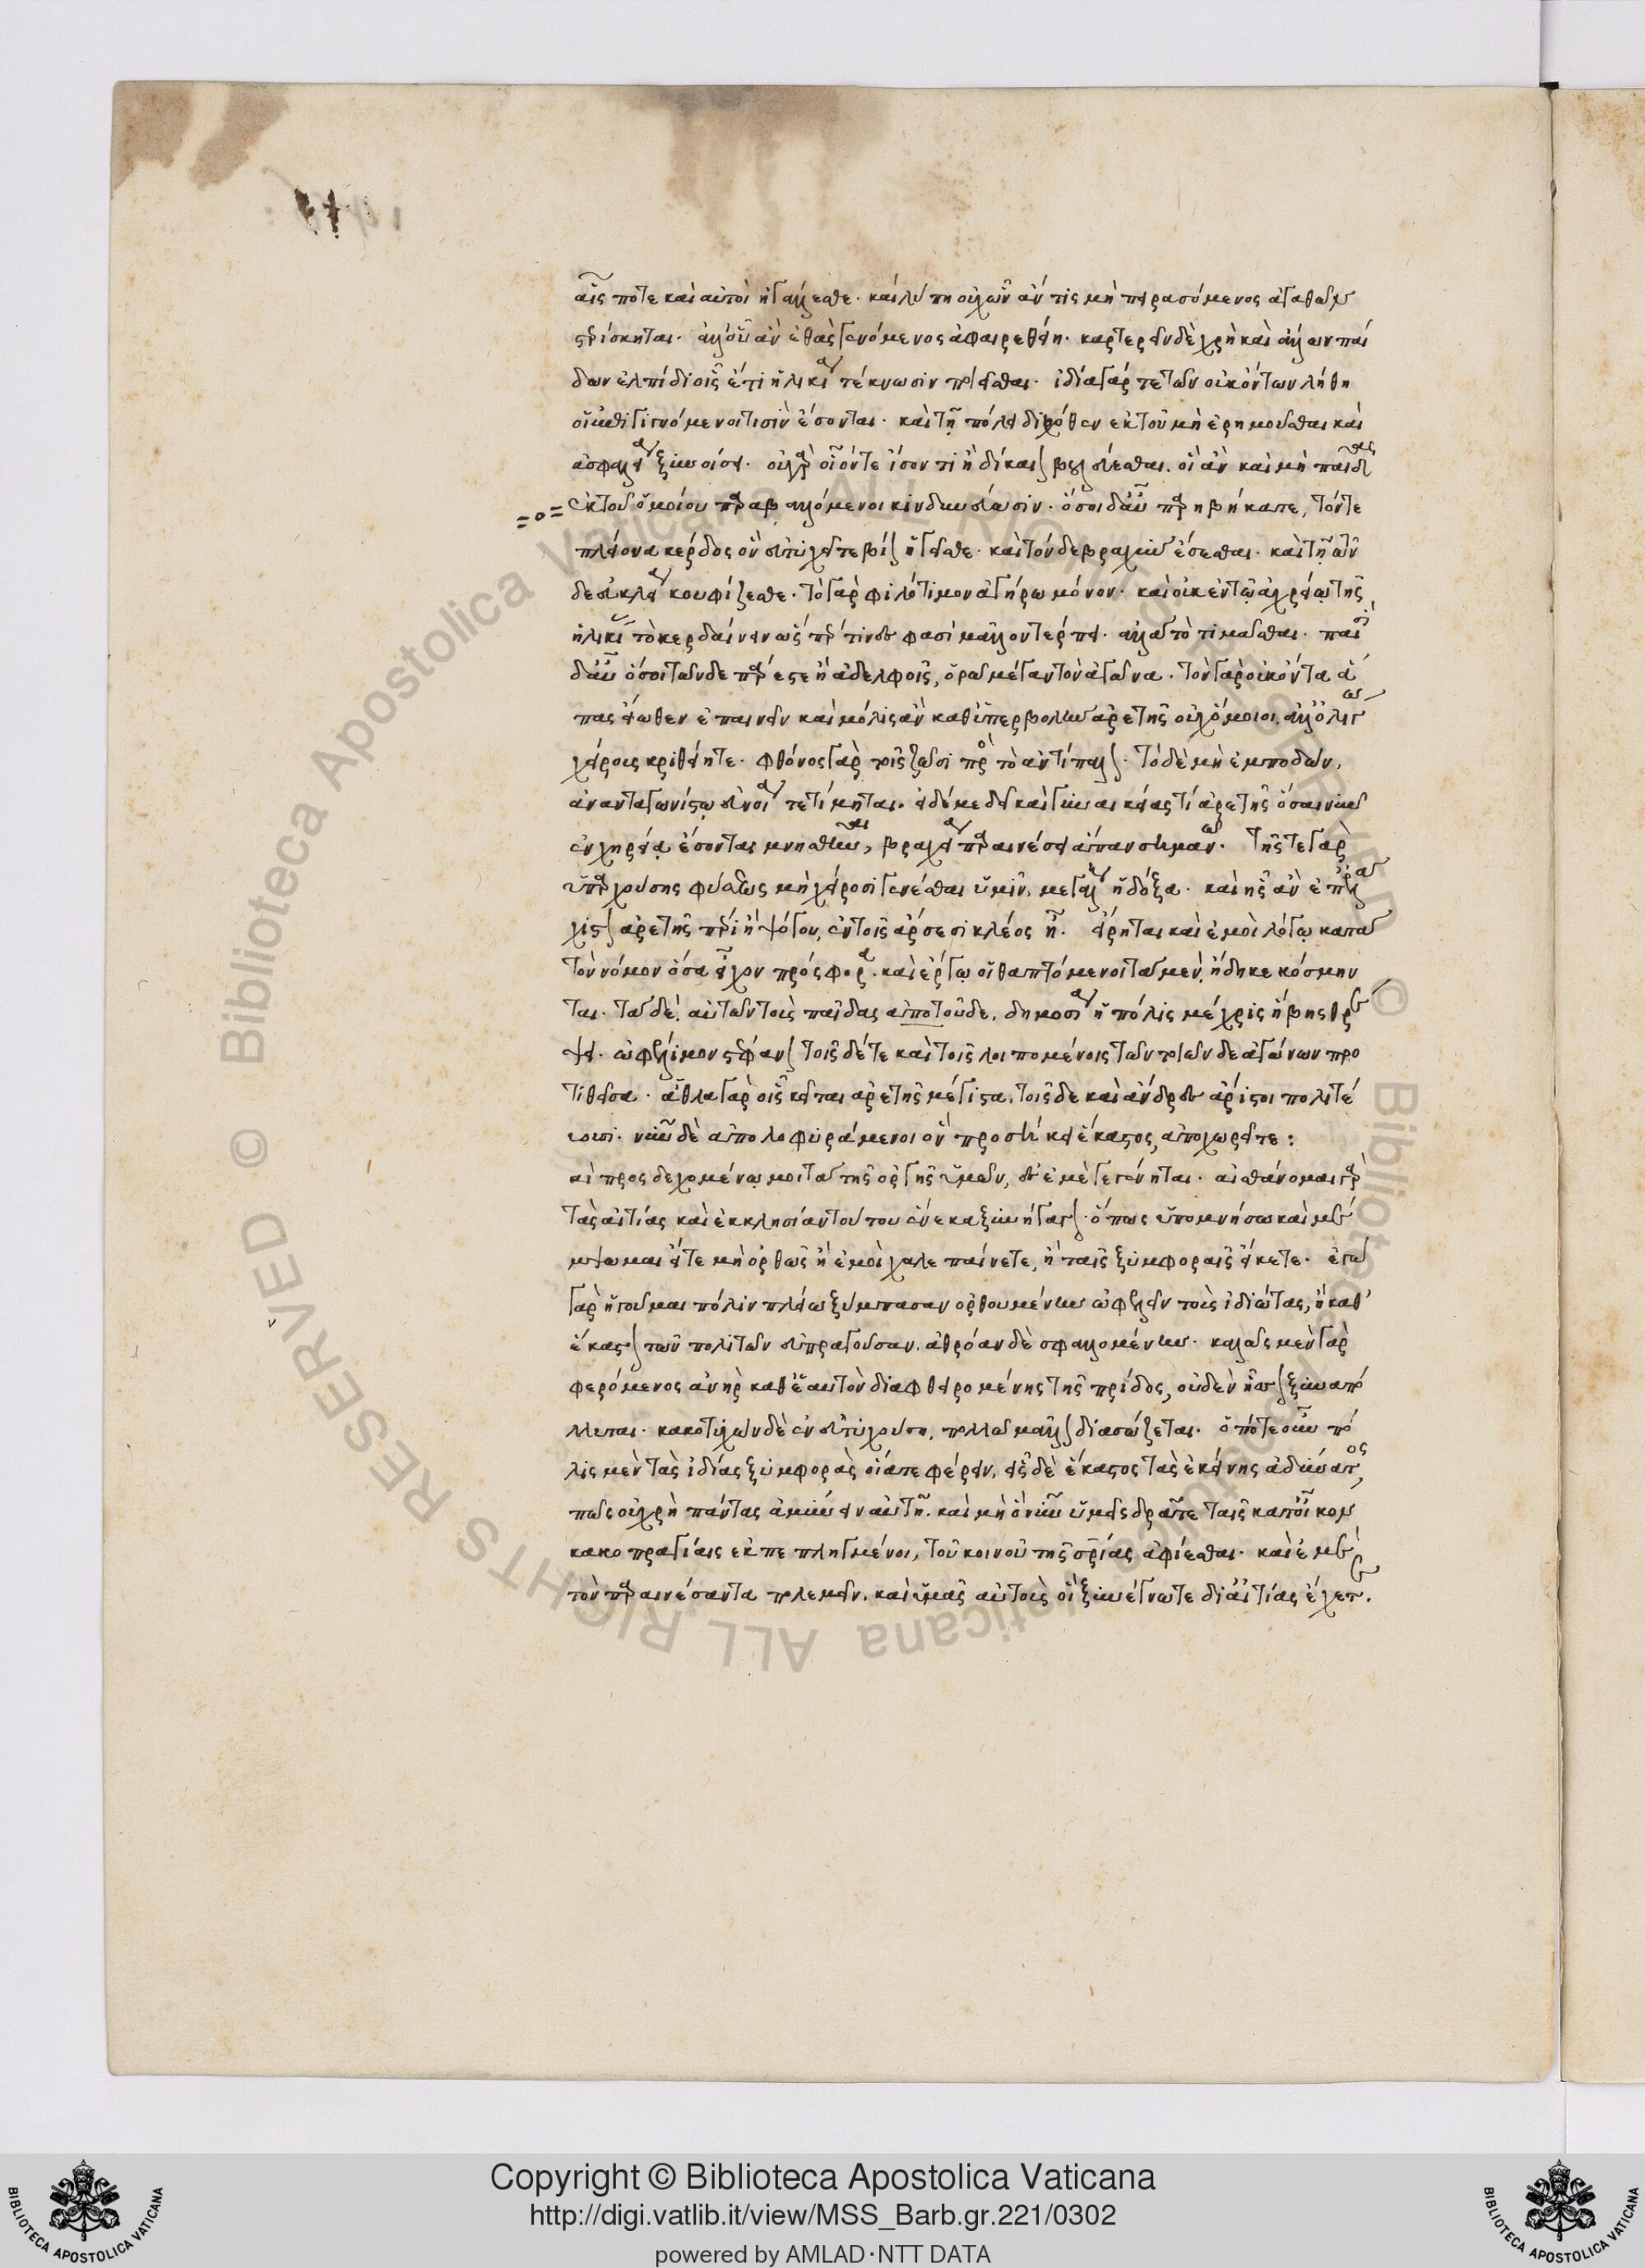 αἷς ποτε καὶ αὐτοὶ ἠγάλλεσθε. καὶ λύπη οὐχ ὧν ἄν τις μὴ πειρασόμενος ἀγαθῶν
στερίσκηται. ἀλλ' οὗ ἂν ἐθὰς γενόμενος ἀφαιρεθείη. καρτερεῖν δὲ χρὴ καὶ ἄλλων παί
δων ἐλπίδι οἷς ἔτι ἡλικία τέκνωσιν ποιεῖσθαι. ἰδία γάρ τε τῶν οὐκ ὄντων λήθη
οἱ ἐπιγιγνόμενοι τισὶν ἔσονται. καὶ τῇ πόλει διχόθεν ἐκ τοῦ μὴ ἐρημοῦσθαι καὶ
ἀσφαλεία ξυνοίσει. οὐ γὰρ οἷόν τε ἴσον τι ἢ δίκαιον βουλεύεσθαι. οἳ ἂν καὶ μὴ παῖδας
ἐκ τοῦ ὁμοίου παραβαλλόμενοι κινδυνεύωσιν. ὅσοι δ' αὖ παρηβήκατε, τόν τε
πλείονα κέρδος ὃν εὐτυχεῖτε βίον ἡγεῖσθε. καὶ τόνδε βραχὺν ἔσεσθαι. καὶ τῇ τῶν
δε εὐκλεία κουφίζεσθε. τὸ γὰρ φιλότιμον ἀγήρω μόνον. καὶ οὐκ ἐν τῷ ἀχρείῳ τῆς
ἡλικίας τὸ κερδαίνειν ὥσπερ τινες φασὶ μᾶλλον τέρπει. ἀλλὰ τὸ τιμᾶσθαι. παισὶ
δ' αὖ ὅσοι τῶνδε πάρεστε ἢ ἀδελφοῖς, ὁρῶ μέγαν τὸν ἀγῶνα. τὸν γὰρ οὐκ ὄντα ἅ
πας εἴωθεν ἐπαινεῖν καὶ μόλις ἂν καθ' ὑπερβολὴν ἀρετῆς οὐχ ὅμοιοι. ἀλλ' ὀλίγως
χείροις κριθείητε. φθόνος γὰρ τοῖς ζῶσι πρὸς τὸ ἀντίπαλον. τὸ δὲ μὴ ἐμποδὼν,
ἀνανταγωνίστῳ εὐνοία τετίμηται. εἰ δέ με δεῖ καὶ γυναικείας τι ἀρετῆς ὅσαι νῦν
ἐν χηρεία ἔσονται μνησθῆναι, βραχεία παραινέσει ἅπαν σημανῶ. τῆς τε γὰρ
ὑπαρχούσης φύσεως μὴ χείροσι γενέσθαι ὑμῖν, μεγάλη ἡ δόξα. καὶ ἧς ἂν ἐπ' ἐλά
χιστον ἀρετῆς πέρι ἢ ψόγου, ἐν τοῖς ἄρσεσι κλέος ᾖ. εἴρηται καὶ ἐμοὶ λόγῳ κατὰ
τὸν νόμον ὅσα εἶχον πρόσφορα. καὶ ἔργῳ οἱ θαπτόμενοι τὰ μὲν ἤδη κεκόσμην
ται. τὰ δὲ. αὐτῶν τοὺς παῖδας ἀπὸ τοῦδε. δημοσία ἡ πόλις μέχρις ἥβης θρέ
ψει. ὠφέλιμον στέφανον τοῖς δέ τε καὶ τοῖς λοιπομένοις τῶν τοιῶνδε ἀγώνων προ
τιθεῖσα. ἆθλα γὰρ οἷς κεῖται ἀρετῆς μέγιστα. τοῖς δε καὶ ἄνδρες ἄριστοι πολιτεύ
ουσι. νῦν δὲ ἀπολοφυράμενοι ὃν προσήκει ἕκαστος, ἀποχωρεῖτε:
καὶ προσδεχομένῳ μοι τὰ τῆς ὀργῆς ὑμῶν, ἐς ἐμὲ γεγένηται. αἰσθάνομαι γὰρ
τὰς αἰτίας καὶ ἐκκλησίαν τούτου ἕνεκα ξυνήγαγον. ὅπως ὑπομνήσω καὶ μέ
μψωμαι εἴ τε μὴ ὀρθῶς ἢ ἐμοὶ χαλεπαίνετε, ἢ ταῖς ξυμφοραῖς εἴκετε. ἐγὼ
γὰρ ἡγοῦμαι πόλιν πλείω ξύμπασαν ὀρθουμένην ὠφελεῖν τοὺς ἰδιώτας, ἢ καθ'
ἕκαστον τῶν πολιτῶν εὐπραγοῦσαν. ἀθρόαν δὲ σφαλλομένην. καλῶς μὲν γὰρ
φερόμενος ἀνὴρ καθ' ἑαυτὸν διαφθειρομένης τῆς πατρίδος, οὐδὲν ἧσσον ξυναπό
λλυται. κακοτυχῶν δὲ ἐν εὐτυχούσῃ, πολλῷ μᾶλλον διασώζεται. ὁπότε οὖν πό
λις μὲν τὰς ἰδίας ξυμφορὰς οἵα τε φέρειν, εἷς δὲ ἕκαστος τὰς ἐκείνης ἀδύνατος,
πῶς οὐ χρὴ πάντας ἀμύνειν αὐτῇ. καὶ μὴ ὃ νῦν ὑμεῖς δρᾶτε ταῖς κατ' οἶκον
κακοπραγίαις ἐκπεπληγμένοι, τοῦ κοινοῦ τῆς σωτηρίας ἀφίεσθαι. καὶ ἐμέ
τὸν παραινέσαντα πολεμεῖν. καὶ ὑμᾶς αὐτοὺς οἳ ξυνέγνωτε δι' αἰτίας ἔχετε.
Copyright © Biblioteca Apostolica Vaticana
http://digi.vatlib.it/view/MSS_Barb.gr.221/0302
powered by AMLAD·NTT DATA